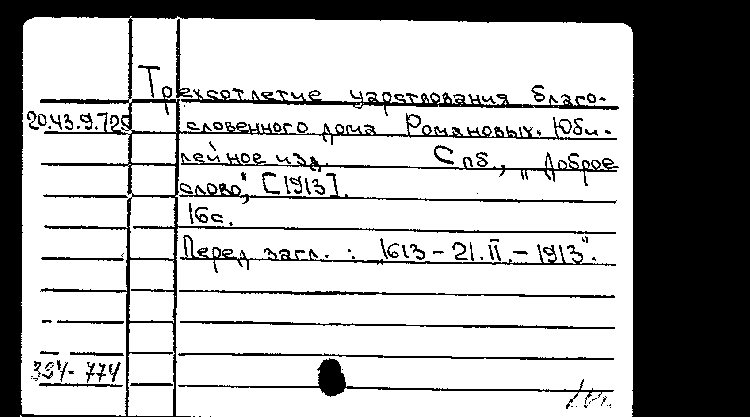 Трехсотлетие царствования благо-
20.43.9.729 словенного дома Романовых. Юби-
лейное изд. Спб., „Доброе
слово", [1913].
16с.
Перед загл.: 1613 – 21.II. – 1913".
324-774